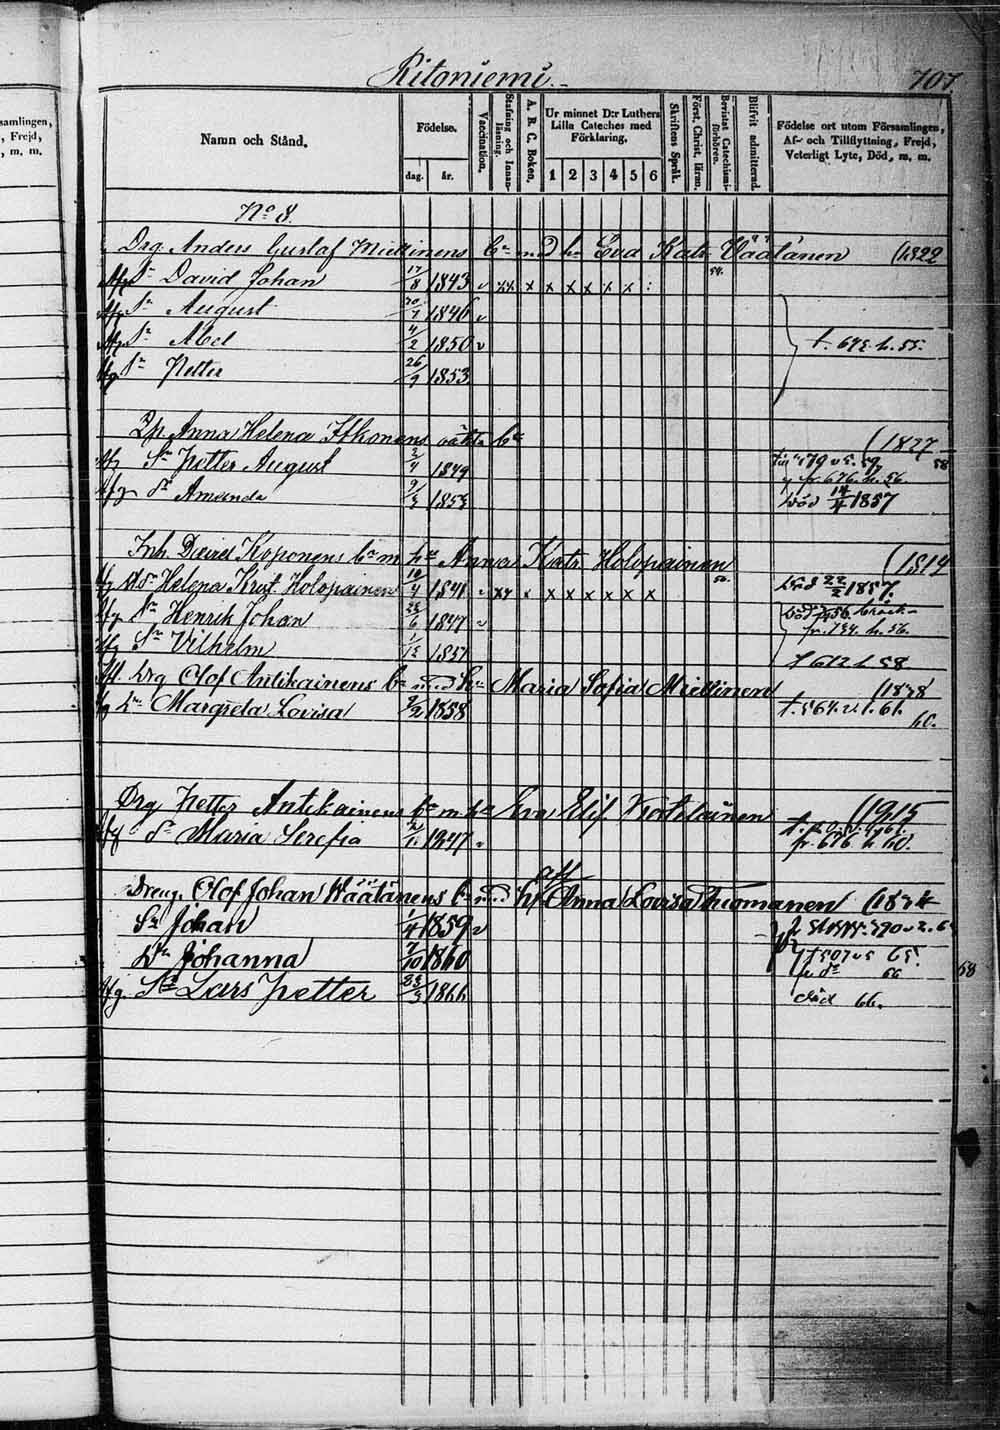 samlingen,
, Frejd,
, m. m.
Ritoniemi.
707
Namn och Stånd.
Födelse.
dag.
år.
Vaccination.
Stafning och Innan-läsning.
A. B. C. Boken.
Ur minnet D:r Luthers
Lilla Cateches med
Förklaring.
1 2 3 4 5 6
Skriftens Språk.
Först. Christ. läran.
Bevistat Catechismi-förhören.
Blifvit admitterad.
Födelse ort utom Församlingen,
Af- och Tillflyttning, Frejd,
Veterligt Lyte, Död, m. m.
No 8.
Drg Anders Gustaf Miettinens bn med h. Eva Katr. Väätänen (1822
Sn David Johan 17/8 1843 v xx x x x x x x :
Sn August 1846 v
Sn Abel 4/2 1850 v t. 675. h. 55.
Sn Petter 26/9 1853
Pp. Anna Helena Itkonens oäkta bn (1827
Sn Petter August 2/4 1849
fr. 676. h. 56.
Dr Amanda 1853 död 14/4 1857
Inh David Koponens bn m hu Anna Katr Holopainen (1814
Helena Krist. Holopainen 10/4 1841 v xx x x x x x x x död 22/2 1857.
Sn Henrik Johan 1847 v
fr. 754. h. 56.
Sn Vilhelm 1851
Drg Olof Antikainens bn med hu Maria Sofia Miettinen (1838
Dr Margreta Lovisa 9/2 1858 t. 564. v. 1. 61.
Drg Petter Antikainens bn m hu Eva Elis. Kootilainen (1915
Dr Maria Serefia 1847 v fr. 676 h 60.
aft
Dreng. Olof Johan Väätänens bn med hu Anna Lovisa Thuomanen (1834
Sn Johan 1/4 1859 v
Dr Johanna 7/10 1860
Sn Lars Petter 1866 död 66.
58